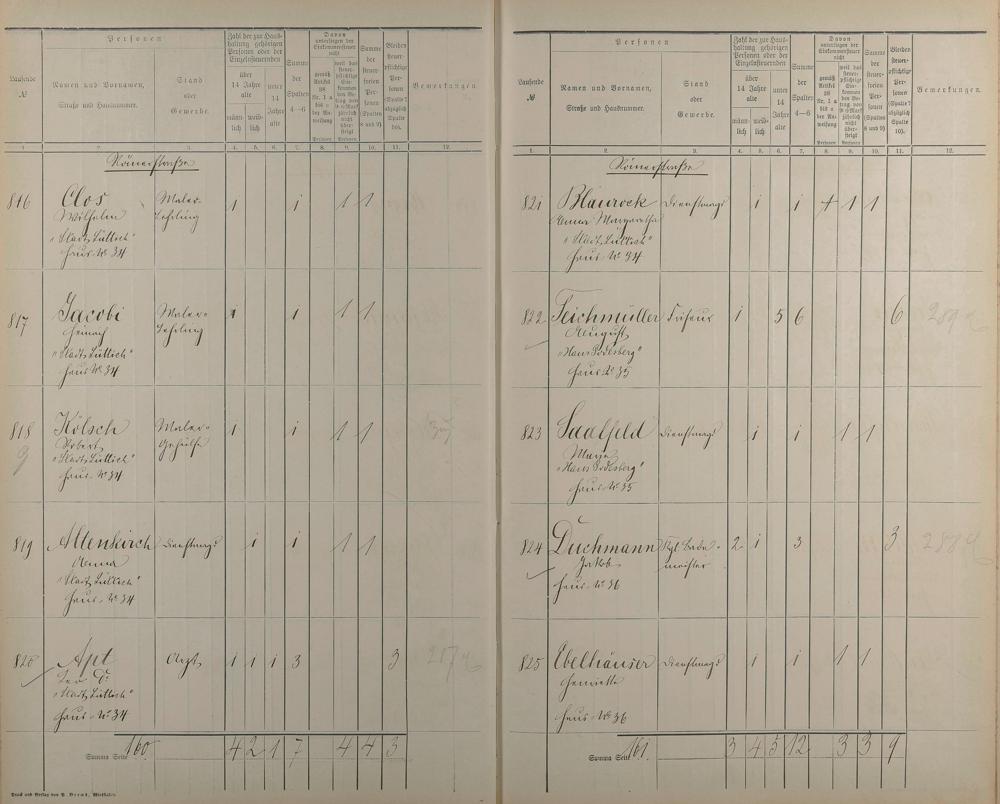 Laufende №
Personen
Namen und Vornamen,
Straße und Hausnummer.
Stand
oder
Gewerbe.
Zahl der zur Haus-
haltung gehörigen
Personen oder der
Einzelnsteuernden
über
14 Jahre
alte
männ-
lich
weib-
lich
unter
14
Jahre
alte
Summe
der
Spalten
4—6
Davon
unterliegen der
Einkommensteuer
nicht
gemäß
Artikel
Personen
Personen
Summe
der
steuer-
freien
Per-
sonen
(Spalten
8 und 9)
Bleiben
steuer-
pflichtige
Per-
sonen
(Spalte 7
abzüglich
Spalte
10).
Bemerkungen.
1. 2. 3. 4. 5. 6. 7. 8. 9. 10. 11. 12.
Römerstraße
816 Clos Maler- 1 1 1 1
Wilhelm Lehrling
"Stadt Lüttich"
Haus № 34
817 Jacobi Maler- 1 1 1 1
Heinrich Lehrling
"Stadt Lüttich"
Haus № 34
818 Kölsch Maler- 1 1 1 1
Robert Gehülfe
"Stadt Lüttich"
Haus № 34
819 Altenkirch Dienstmagd 1 1 1 1
Anna
"Stadt Lüttich"
Haus № 34
820 Apt Arzt 1 1 1 3 3
"Stadt Lüttich"
Haus № 34
Summa Seite 160. 4 2 1 7 4 4 3
Laufende №
Personen
Namen und Vornamen,
Straße und Hausnummer.
Stand
oder
Gewerbe.
Zahl der zur Haus-
haltung gehörigen
Personen oder der
Einzelnsteuernden
über
14 Jahre
alte
männ-
lich
weib-
lich
unter
14
Jahre
alte
Summe
der
Spalten
4—6
Davon
unterliegen der
Einkommensteuer
nicht
Personen
Personen
Summe
der
steuer-
freien
Per-
sonen
(Spalten
8 und 9)
Bleiben
steuer-
pflichtige
Per-
sonen
(Spalte 7
abzüglich
Spalte
10).
Bemerkungen.
1. 2. 3. 4. 5. 6. 7. 8. 9. 10. 11. 12.
Römerstraße
821 Blaurock Dienstmagd 1 1 1 1
Anna Margaretha
"Stadt Lüttich"
Haus № 34
822 Teichmüller Friseur 1 5 6 6
August
Haus № 35
823 Saalfeld Dienstmagd 1 1 1 1
Haus № 35
824 Duchmann Kgl. Bade- 2 1 3 3
Jakob meister
Haus № 36
825 Ebelhäuser Dienstmagd 1 1 1 1
Henriette
Haus № 36
Summa Seite 161. 3 4 5 12 3 3 9